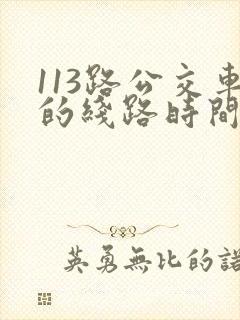 113路公交車
的綫路時間
英勇無比的諾